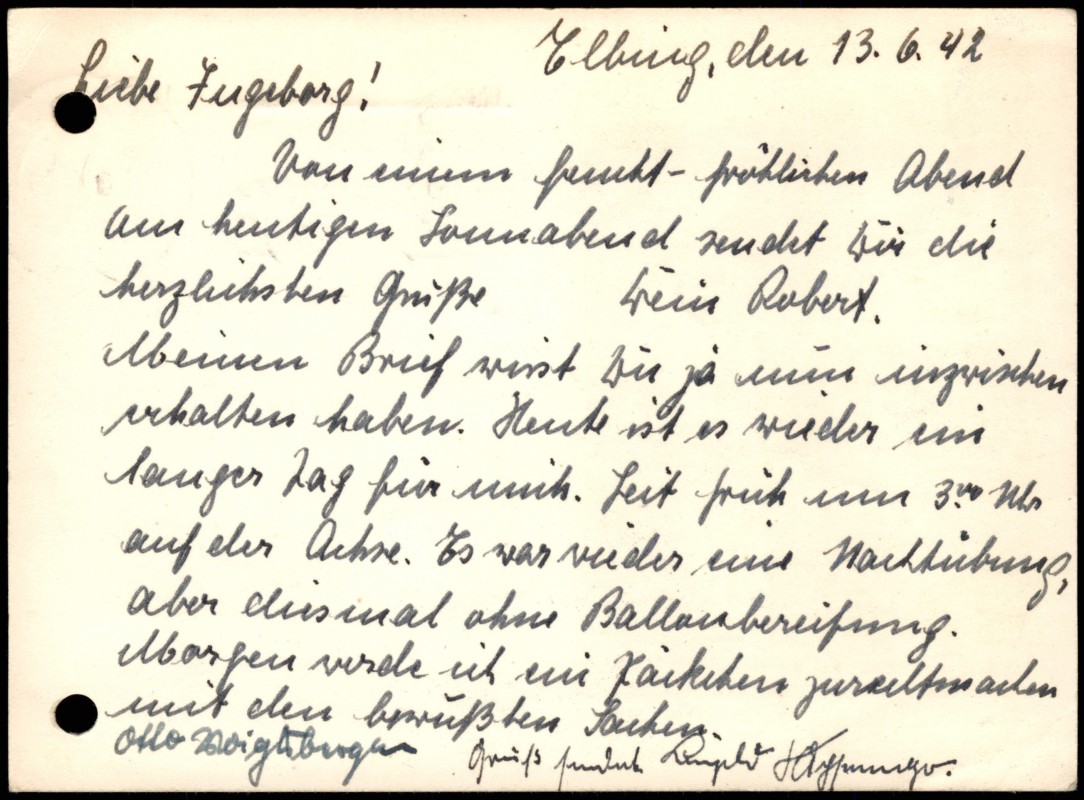 Elbing, den 13. 6. 42
Liebe Ingeborg!
Von einem feucht-fröhlichen Abend
am heutigen Sonnabend sendet Dir die
herzlichsten Grüße Dein Robert.
Meinen Brief wirst Du ja nun inzwischen
erhalten haben. Heute ist es wieder ein
langer Tag für mich. Seit früh um 3.00 Uhr
auf der Achse. Es war wieder eine Nachtübung,
aber diesmal ohne Ballonbereifung.
Morgen werde ich ein Päckchen zurechtmachen
mit den bewußten Sachen.
Otto Voigtsberger
Gruß sendet